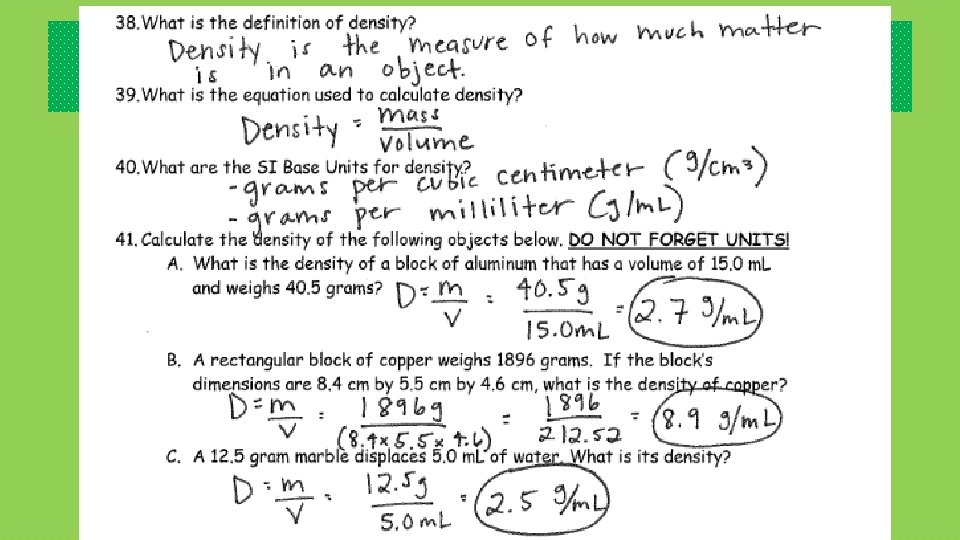 38. What is the definition of density?
Density is the measure of how much matter
is in an object.
39. What is the equation used to calculate density?
Density = mass
volume
40. What are the SI Base Units for density?
- grams per cubic centimeter (g/cm³)
- grams per milliliter (g/mL)
41. Calculate the density of the following objects below. DO NOT FORGET UNITS!
A. What is the density of a block of aluminum that has a volume of 15.0 mL
and weighs 40.5 grams? D = m/V = 40.5g/15.0mL = 2.7 g/mL
B. A rectangular block of copper weighs 1896 grams. If the block's
dimensions are 8.4 cm by 5.5 cm by 4.6 cm, what is the density of copper?
D = m/V = 1896g/(8.4 x 5.5 x 4.6) = 1896/212.52 = 8.9 g/mL
C. A 12.5 gram marble displaces 5.0 mL of water. What is its density?
D = m/V = 12.5g/5.0 mL = 2.5 g/mL